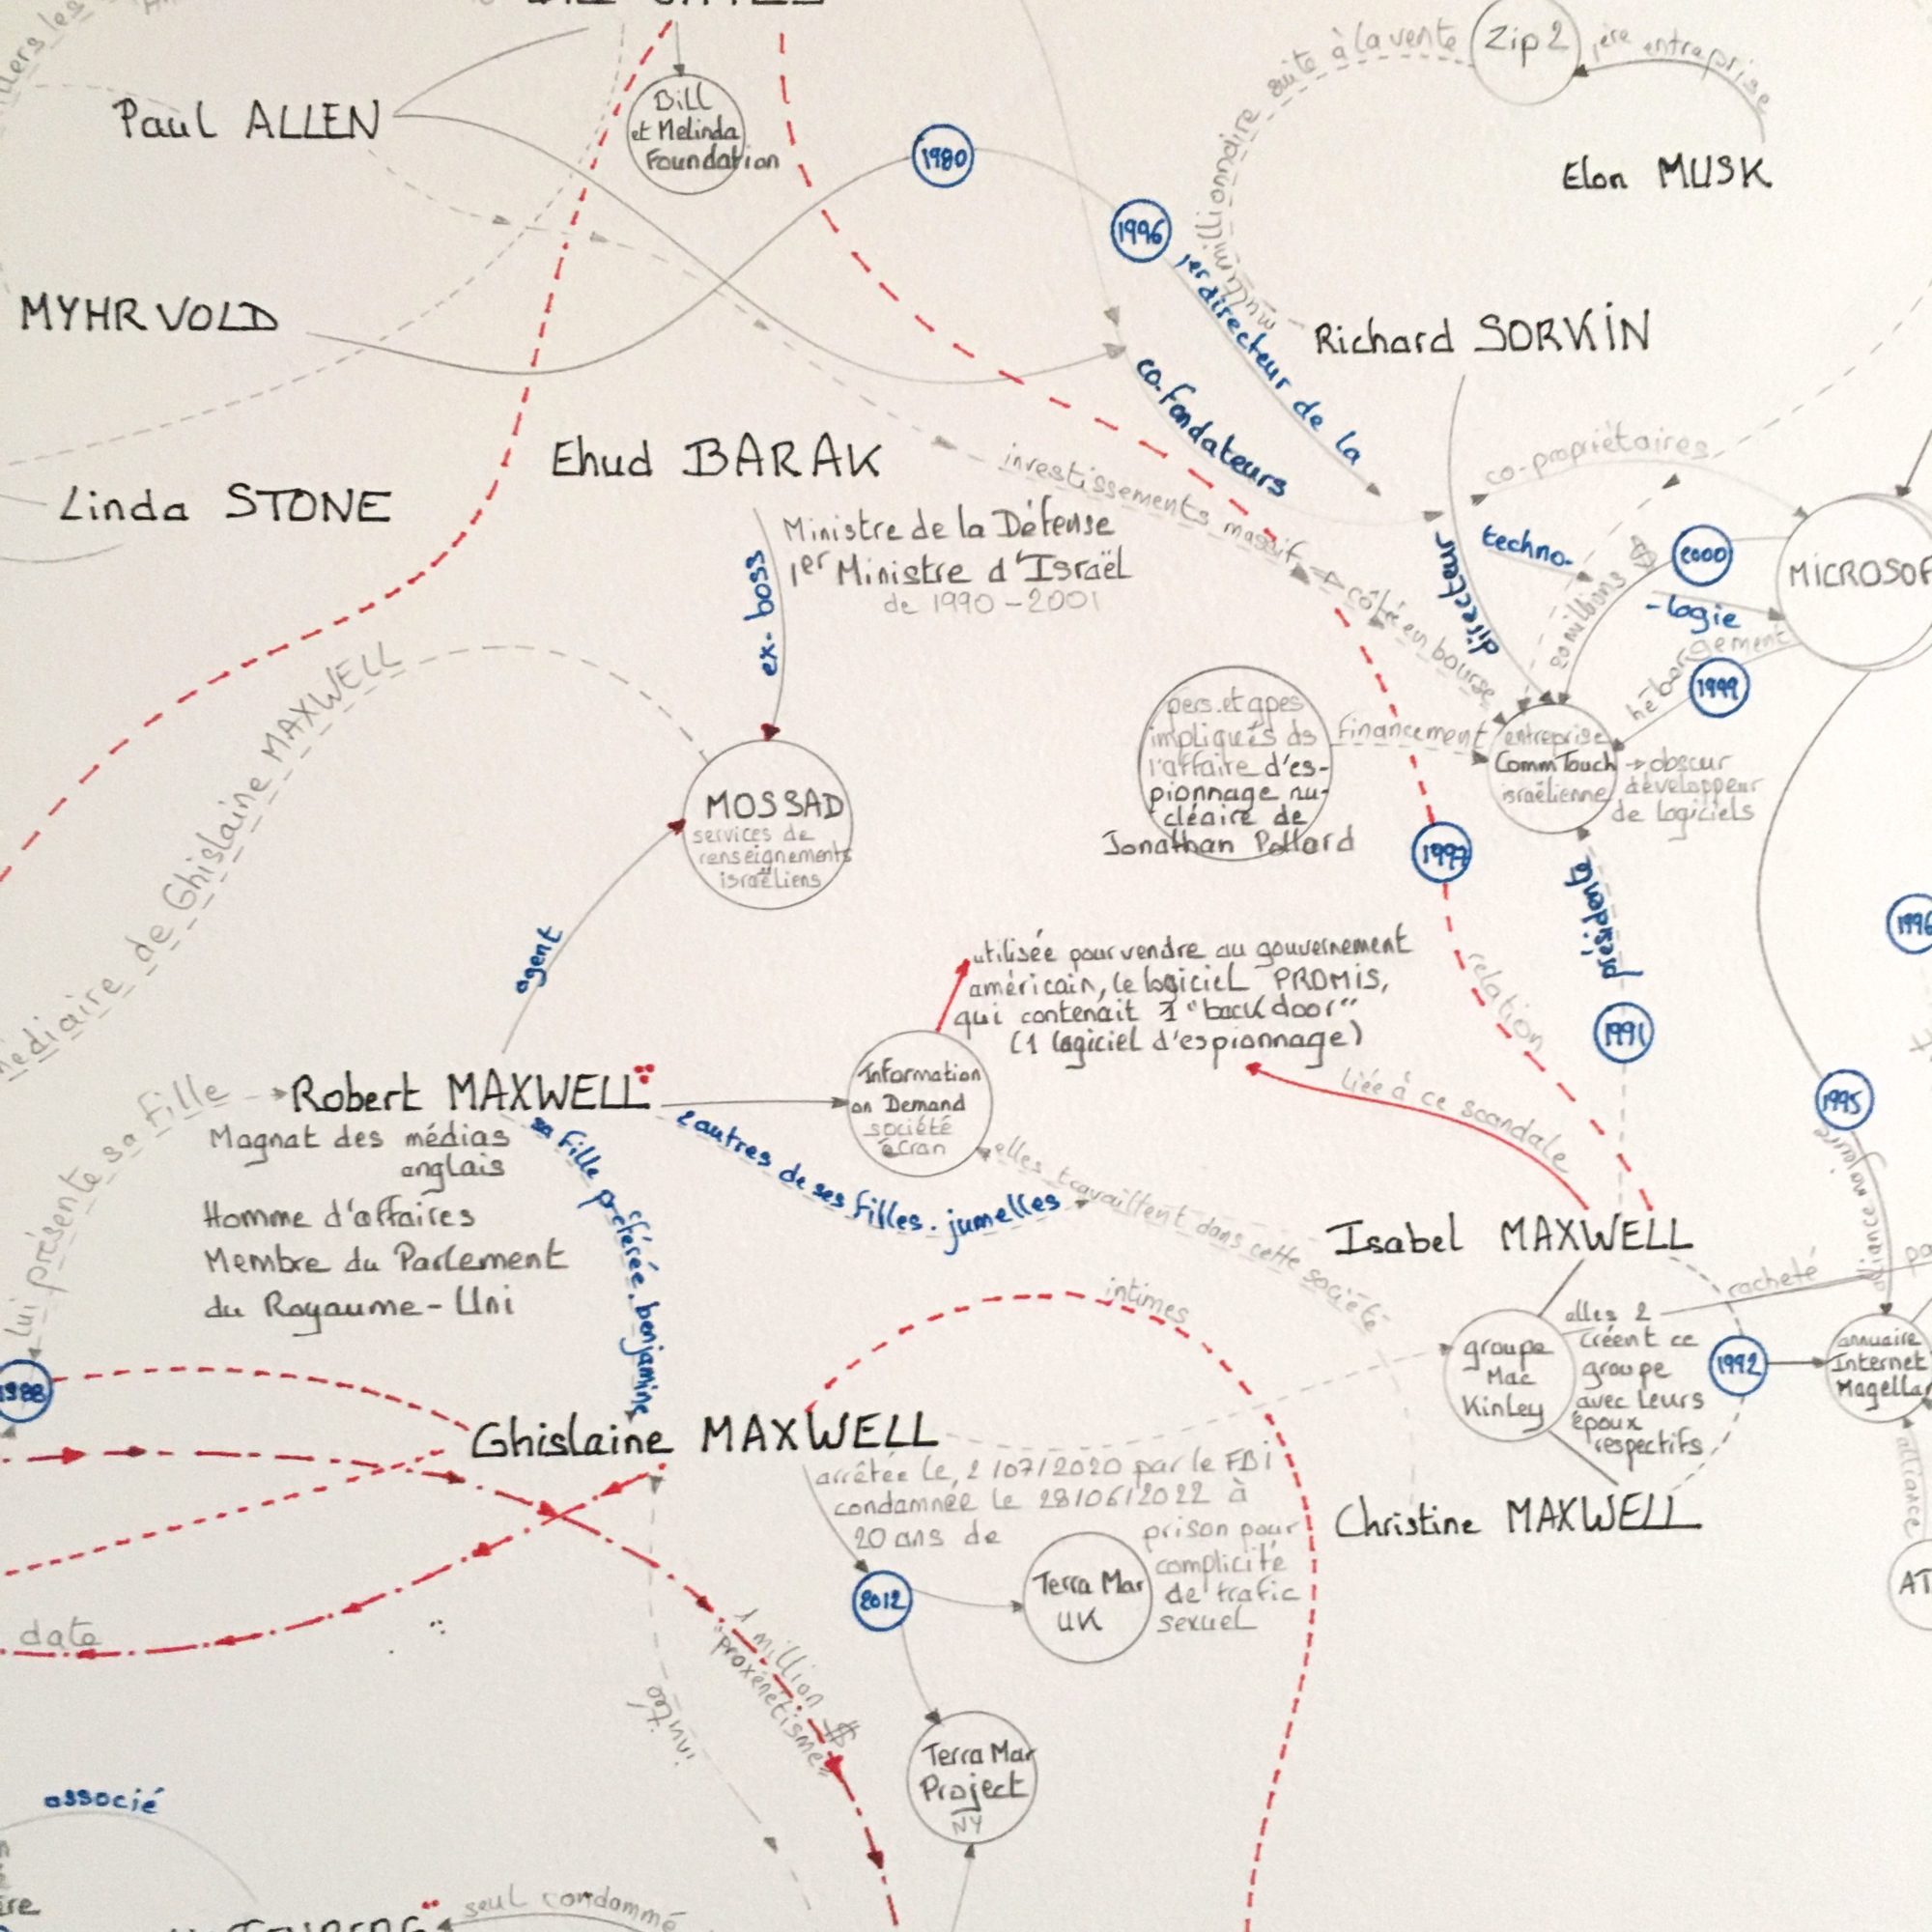 Zip 2
suite à la vente
1ère entreprise
Paul ALLEN
Bill
et Melinda
Foundation
1980
Elon MUSK
multimillionnaire
1996
MYHRVOLD
1er directeur de la
Richard SORKIN
co-fondateurs
Ehud BARAK
co-propriétaires
investissements massifs
côtée en bourse
Linda STONE
Ministre de la Défense
1er Ministre d'Israël
de 1990-2001
ex-boss
directeur
techno-
-logie
2000
20 millions $
MICROSOF
hébergement
1999
MAXWELL
médiaire de Ghislaine MAXWELL
pers. et gpes
impliqués ds
l'affaire d'es-
pionnage nu-
cléaire de
Jonathan Pollard
financement
entreprise
CommTouch
israélienne
→ obscur
développeur
de logiciels
MOSSAD
services de
renseignements
israëliens
1997
présidente
1996
agent
utilisée pour vendre au gouvernement
américain, le logiciel PROMIS,
qui contenait 1 "back door"
(1 logiciel d'espionnage)
relation
1991
Information
on Demand
société
écran
liée à ce scandale
1995
lui présente sa fille
Robert MAXWELL
Magnat des médias
anglais
Homme d'affaires
Membre du Parlement
du Royaume-Uni
sa fille préférée. benjamine
2 autres de ses filles. jumelles
elles travaillent dans cette société
Isabel MAXWELL
racheté
alliance
intimes
groupe
Mac
Kinley
elles 2
créent ce
groupe
avec leurs
époux
respectifs
1992
annuaire
Internet
Magella
1988
Ghislaine MAXWELL
arrêtée le 2/07/2020 par le FBI
condamnée le 28/06/2022 à
20 ans de
prison pour
complicité
de trafic
sexuel
Christine MAXWELL
alliance
AT
2012
Terra Mar
UK
date
1 million $
"proxénétisme"
invitée
Terra Mar
Project
NY
associé
seul condammé